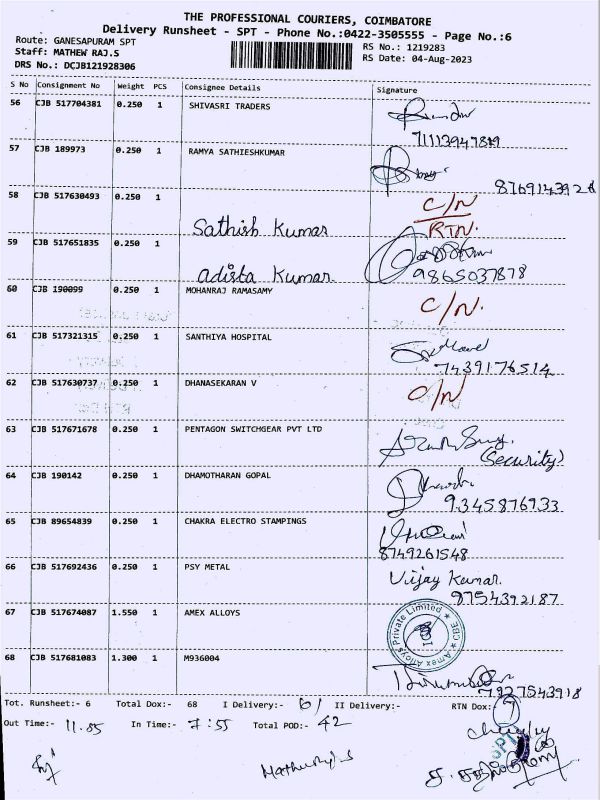 THE PROFESSIONAL COURIERS, COIMBATORE
Delivery Runsheet - SPT - Phone No.:0422-3505555 - Page No.:6
Route: GANESAPURAM SPT
RS No.: 1219283
Staff: MATHEW RAJ.S
RS Date: 04-Aug-2023
DRS No.: DCJB121928306
S No Consignment No Weight PCS Consignee Details Signature
56 CJB 517704381 0.250 1 SHIVASRI TRADERS
57 CJB 189973 0.250 1 RAMYA SATHIESHKUMAR
58 CJB 517630493 0.250 1 Sathish Kumar C/N RTN.
59 CJB 517651835 0.250 1 Adista Kumar. 9865037878
60 CJB 190099 0.250 1 MOHANRAJ RAMASAMY C/N.
61 CJB 517321315 0.250 1 SANTHIYA HOSPITAL 7439176514
62 CJB 517630737 0.250 1 DHANASEKARAN V C/N
63 CJB 517671678 0.250 1 PENTAGON SWITCHGEAR PVT LTD (Security)
64 CJB 190142 0.250 1 DHAMOTHARAN GOPAL 9345876733
65 CJB 89654839 0.250 1 CHAKRA ELECTRO STAMPINGS 8749261548
66 CJB 517692436 0.250 1 PSY METAL Vijay Kumar. 9754392187
67 CJB 517674087 1.550 1 AMEX ALLOYS Amex Alloys Private Limited CBE
68 CJB 517681083 1.300 1 M936004 7927543918
Tot. Runsheet:- 6 Total Dox:- 68 I Delivery:- 61 II Delivery:- RTN Dox:- 7
Out Time:- 11.05 In Time:- 7:55 Total POD:- 42
SPT